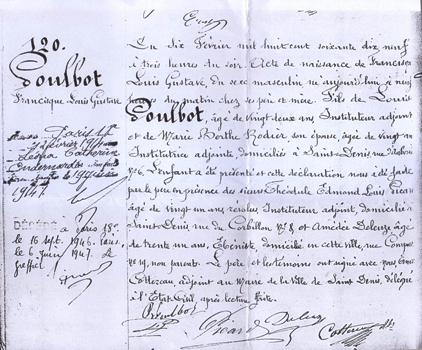 120.
Poulbot
Francisque Louis Gustave
Paris
février 1914
Léona
1914
Décédé à Paris 18e
le 16 sept. 1946.
le 6 juin 1947. Le
greffier
Du dix Février mil huit cent soixante dix neuf
à trois heures du soir. Acte de naissance de Francisque
Louis Gustave, du sexe masculin, né aujourd'hui, à neuf
heures du matin chez ses père et mère. Fils de Louis
Poulbot, âgé de vingt deux ans, Instituteur adjoint
et de Marie Berthe Rodier son épouse, âgée de vingt
Institutrice adjointe, domiciliés à Saint-Denis, rue
L'enfant a été présenté et cette déclaration nous a été faite
par le père en présence des sieurs Théodule Edmond Louis Picard
âgé de vingt ans révolus, Instituteur adjoint, domicilié à
Saint Denis, rue du Corbillon, No 8 et Amédée Deleuze âgé
de trente un ans, Ébéniste, domicilié en cette ville, rue
non parent. Le père et les témoins ont signé avec nous
Cottereau adjoint au Maire de la Ville de Saint Denis, délégué
à l'État Civil, après lecture faite.
Poulbot
Picard Deleuze Cottereau